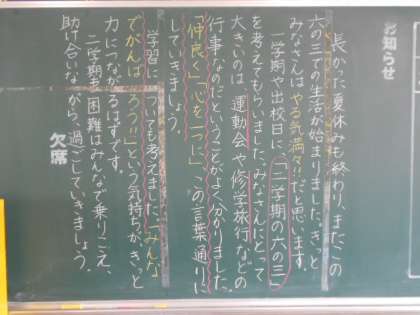 お知らせ
長かった夏休みも終わり、またこの
六の三での生活が始まりました。きっと
みなさんは やる気満々!!だと思います。
一学期や出校日に、「二学期の六の三」
を考えてもらいました。みなさんにとって
大きいのは 運動会や修学旅行などの
行事なのだということがよく分かりました。
「仲良く」「心を一つに」この言葉通りに
していきましょう。
学習についても考えました。「みんな
でがんばろう!!」という気持ちが、きっと
力につながるはずです。
二学期も困難はみんなで乗りこえ、
助け合いながら、過ごしていきましょう。
欠席